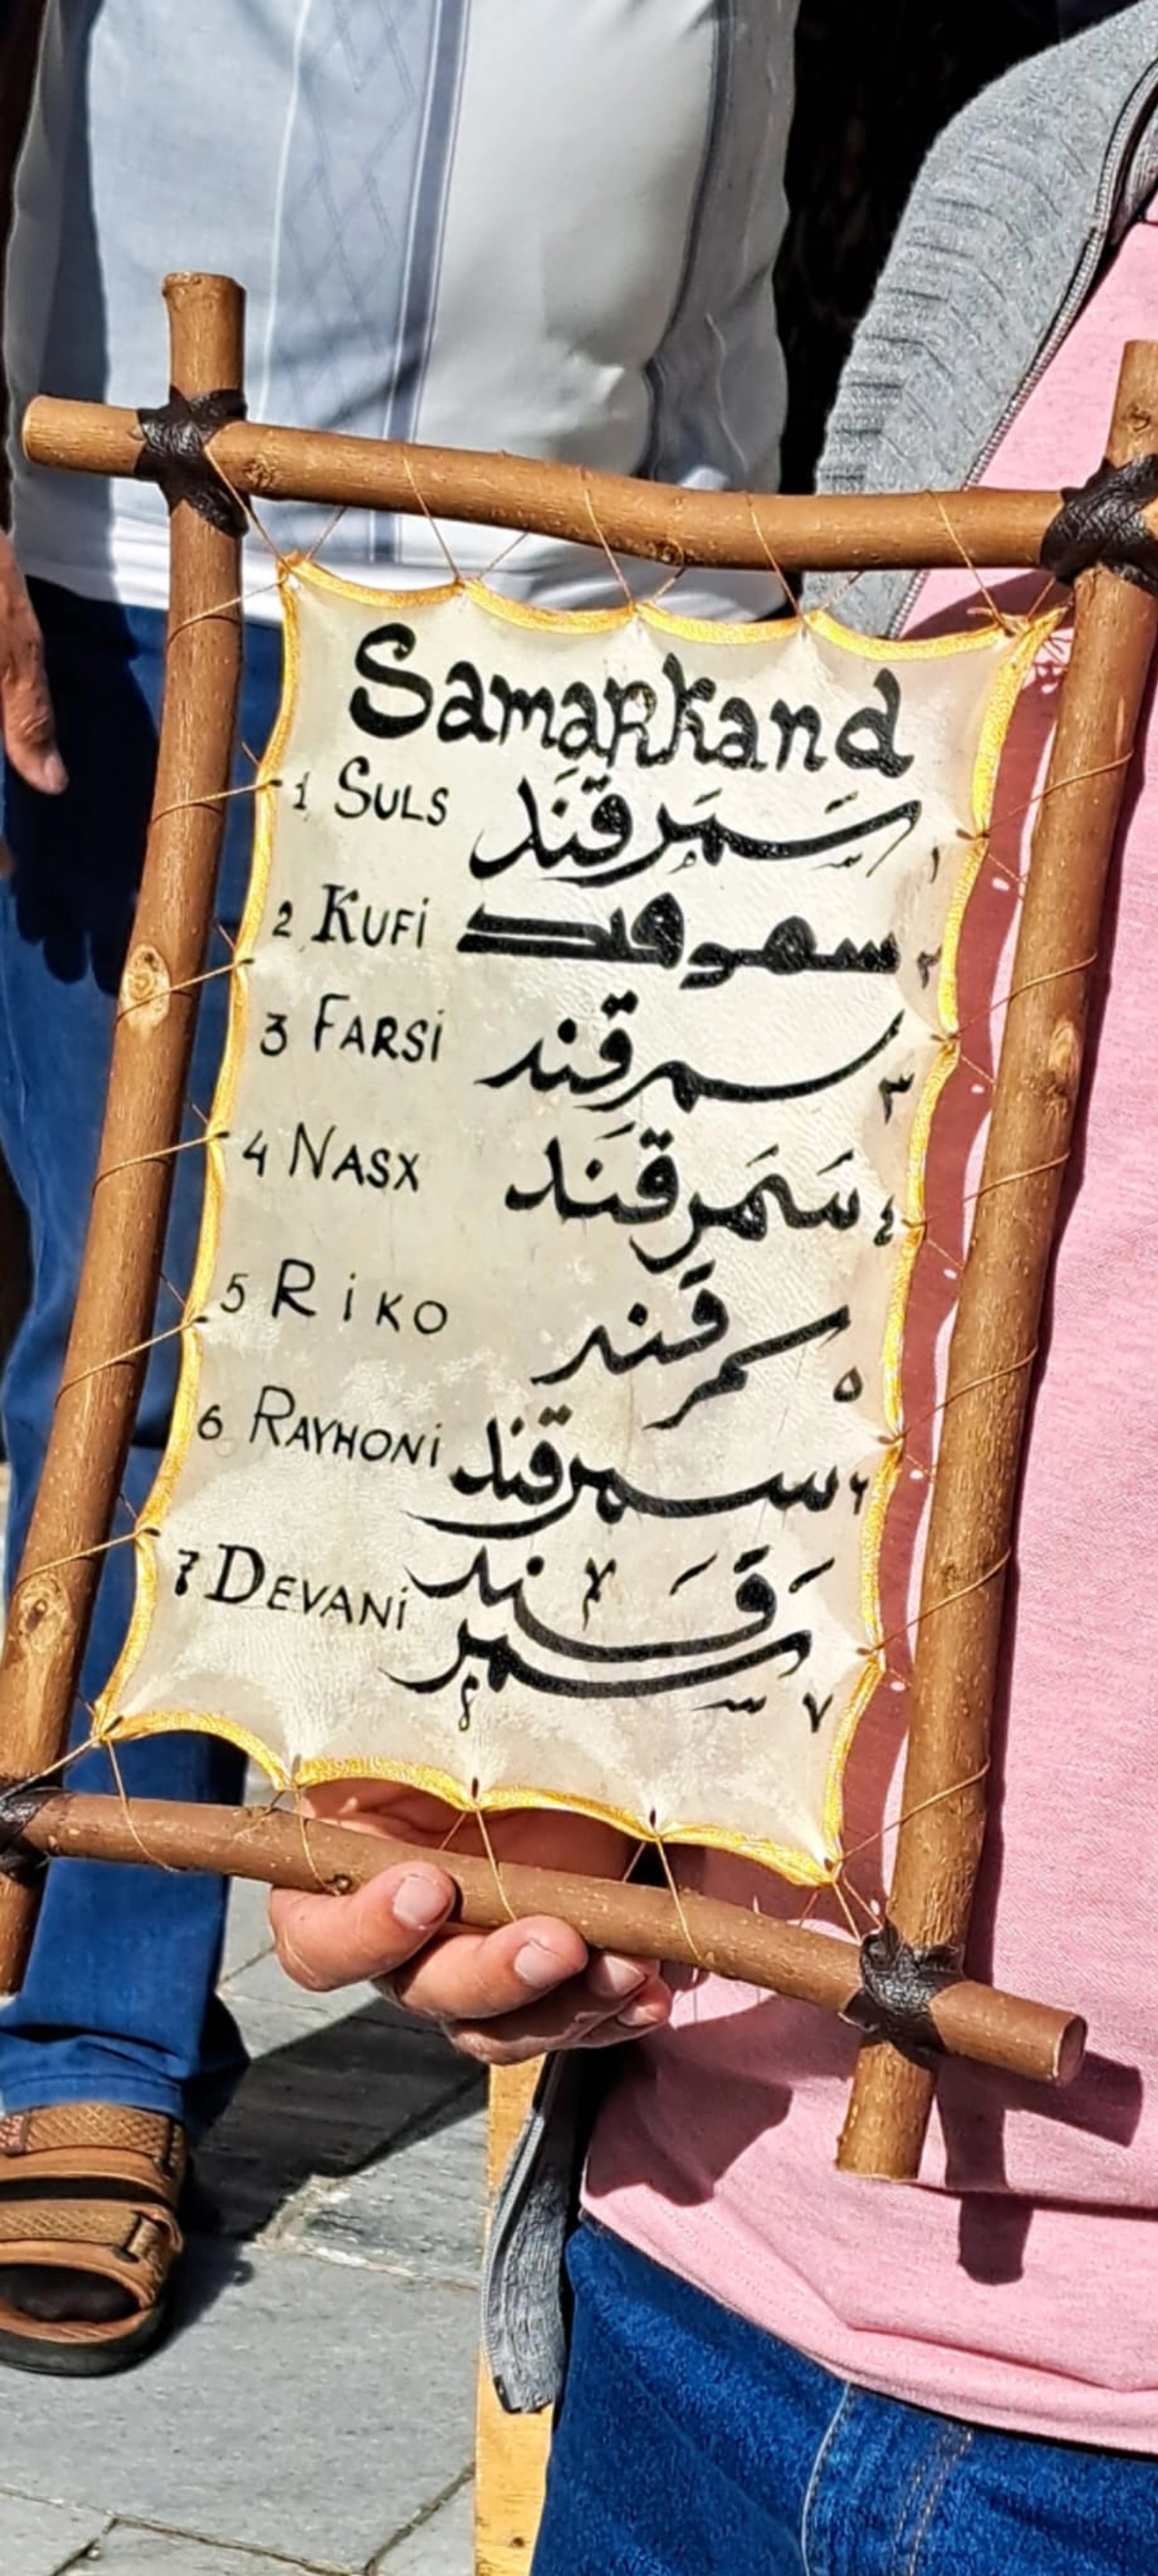 Samarkand
1 Suls سَمَرقَند ١
2 Kufi سمرقند ٢
3 Farsi سمرقند ٣
4 Nasx سَمَرقَند ٤
5 Riko سمرقند ٥
6 Rayhoni سمرقند ٦
7 Devani سمرقند ٧